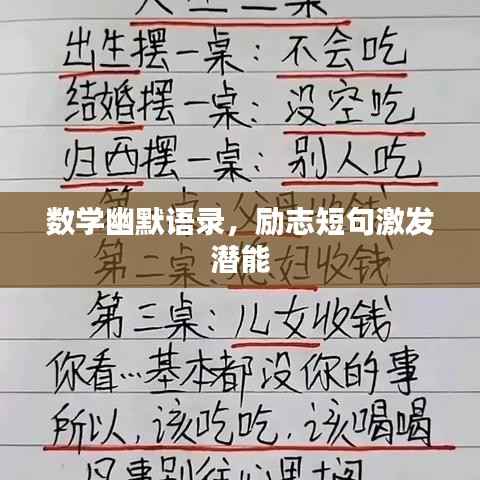 人生三桌
出生摆一桌：不会吃
结婚摆一桌：没空吃
归西摆一桌：别人吃
数学幽默语录，励志短句激发
潜能
第二桌：妇收钱
第三桌：儿女收钱
你看…基本都没你的事
所以，该吃吃，该喝喝
凡事别往心里搁